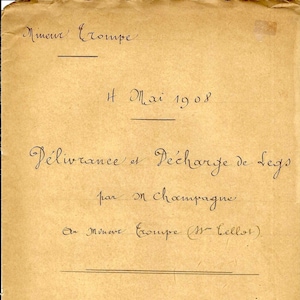 Mineur Trompe
4 Mai 1908
Délivrance et Décharge de Legs
par M Champagne
au Mineur Trompe (Mme Tellot)